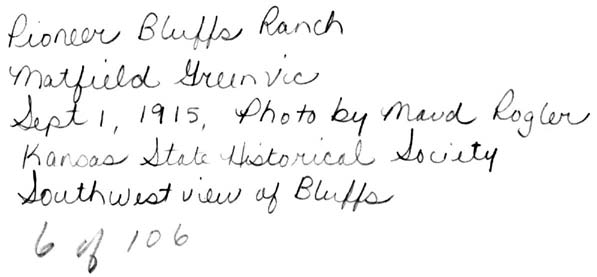 Pioneer Bluffs Ranch
Matfield Green vic
Sept 1, 1915, Photo by Maud Rogler
Kansas State Historical Society
Southwest view of Bluffs
6 of 106